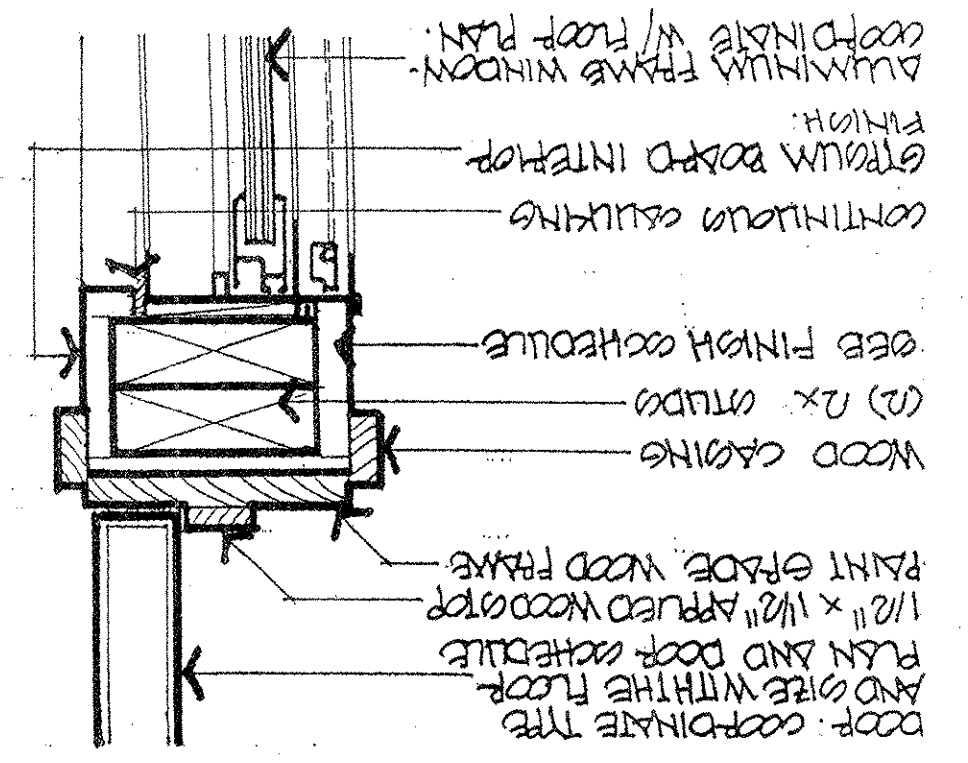 DOOR: COORDINATE TYPE
AND SIZE WITH THE FLOOR
PLAN AND DOOR SCHEDULE
1/2" x 1 1/2" APPLIED WOOD STOP
PAINT GRADE WOOD FRAME
WOOD CASING
(2) 2x STUDS
SEE FINISH SCHEDULE
CONTINUOUS CAULKING
GYPSUM BOARD INTERIOR
FINISH.
ALUMINUM FRAME WINDOW-
COORDINATE W/ FLOOR PLAN.